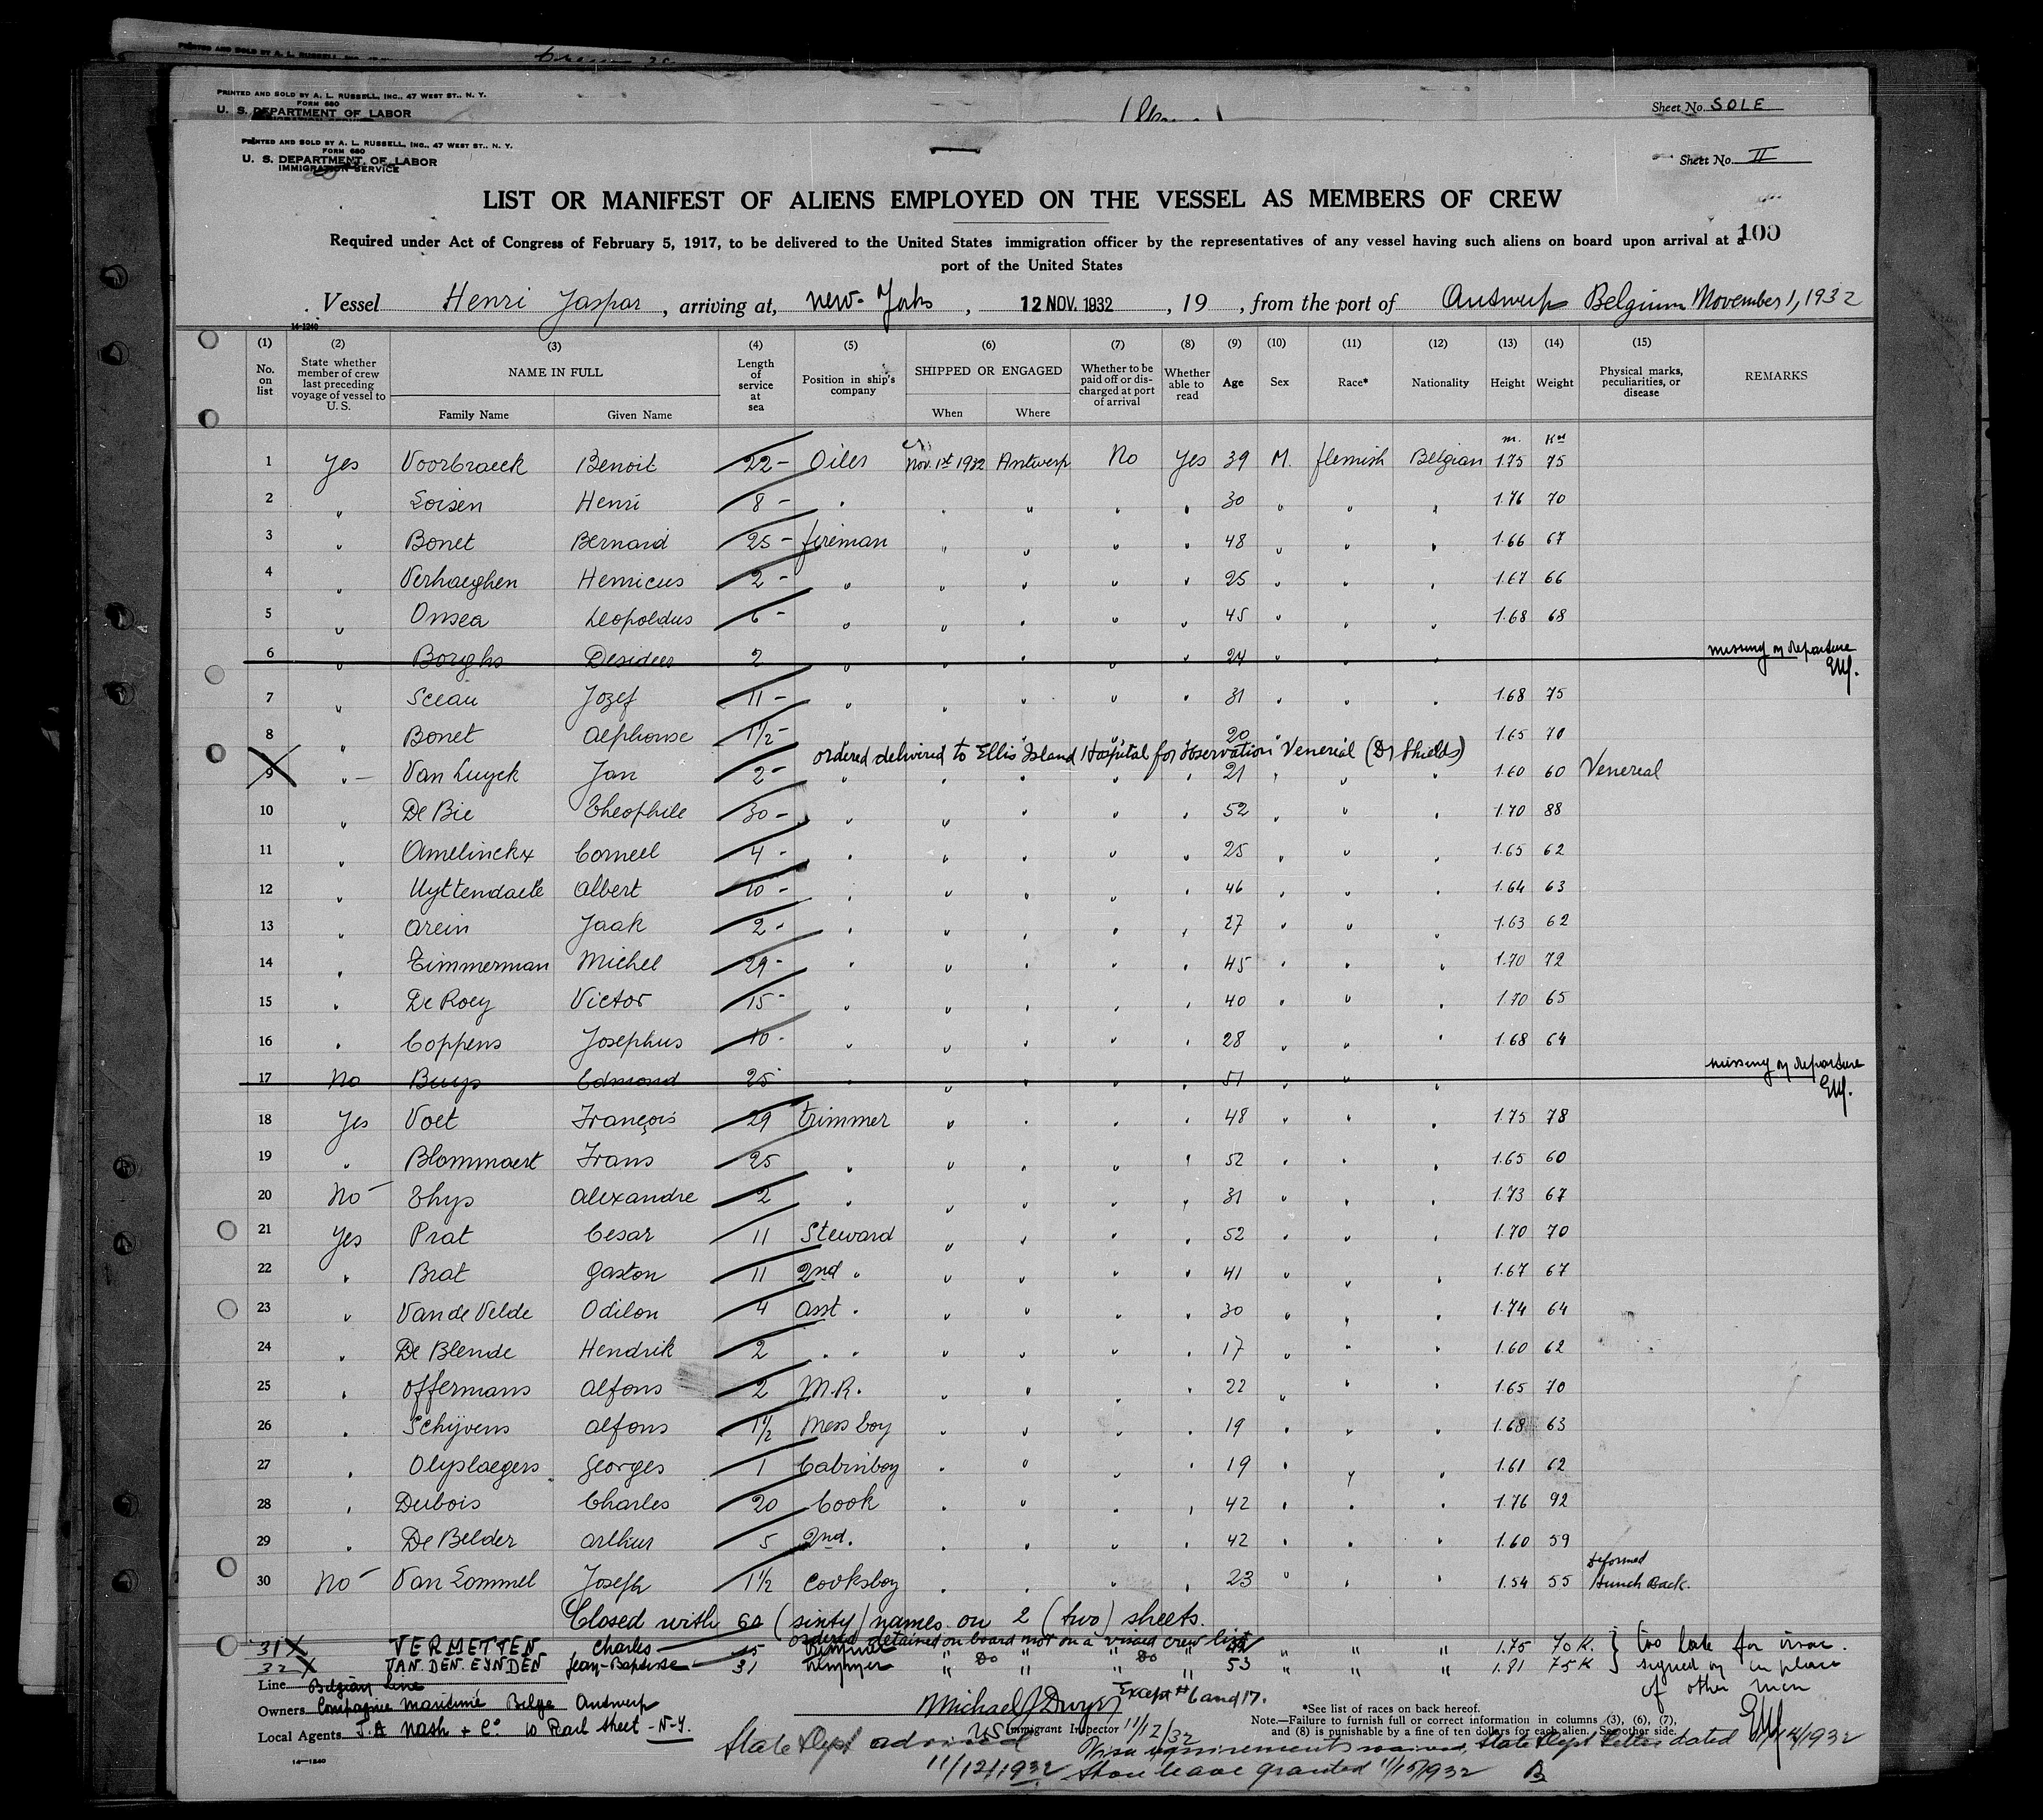 PRINTED AND SOLD BY A. L. RUSSELL, INC., 47 WEST ST., N. Y.
FORM 680
U. S. DEPARTMENT OF LABOR
Sheet No. SOLE
PRINTED AND SOLD BY A. L. RUSSELL, INC., 47 WEST ST., N. Y.
FORM 680
U. S. DEPARTMENT OF LABOR
IMMIGRATION SERVICE
Sheet No. II
LIST OR MANIFEST OF ALIENS EMPLOYED ON THE VESSEL AS MEMBERS OF CREW
100
Required under Act of Congress of February 5, 1917, to be delivered to the United States immigration officer by the representatives of any vessel having such aliens on board upon arrival at a
port of the United States
Vessel Henri Jaspar, arriving at, New-York, 12 NOV. 1932, 19 , from the port of Antwerp Belgium November 1, 1932
14-1240
(1) (2) (3) (4) (5) (6) (7) (8) (9) (10) (11) (12) (13) (14) (15)
No. on list State whether member of crew last preceding voyage of vessel to U. S. NAME IN FULL Family Name Given Name Length of service at sea Position in ship's company SHIPPED OR ENGAGED When Where Whether to be paid off or discharged at port of arrival Whether able to read Age Sex Race* Nationality Height Weight Physical marks, peculiarities, or disease REMARKS
m. Kos
1 Yes Voorbraeck Benoit 22 - Oiler Nov. 1st 1932 Antwerp No Yes 39 M. flemish Belgian 1.75 75
2 " Loisen Henri 8 - " " " " " 30 " " " 1.76 70
3 " Bonet Bernard 25 - fireman " " " " 48 " " " 1.66 67
4 " Verhaeghen Henricus 2 - " " " " " 25 " " " 1.67 66
5 " Onsea Leopoldus 6 - " " " " " 45 " " " 1.68 68
6 " Borghs Desideer 2 " " " " " 24 " " " missing on departure
7 " Sceau Jozef 11 - " " " " " 31 " " " 1.68 75
8 " Bonet Alphonse 1½ - " " " " " 20 " " " 1.65 70
ordered delivered to Ellis Island Hospital for observation Venereal (Dr Shields)
9 " Van Luyck Jan 2 - " " " " " 21 " " " 1.60 60 Venereal
10 " De Bie Theophile 30 - " " " " " 52 " " " 1.70 88
11 " Amelinckx Corneel 4 - " " " " " 25 " " " 1.65 62
12 " Uyttendaele Albert 10 - " " " " " 46 " " " 1.64 63
13 " Arein Jaak 2 - " " " " " 27 " " " 1.63 62
14 " Timmerman Michel 29 - " " " " " 45 " " " 1.70 72
15 " De Roey Victor 15 - " " " " " 40 " " " 1.70 65
16 " Coppens Josephus 10 - " " " " " 28 " " " 1.68 64
17 No Buys Edmond 25 " " " " " 51 " " " missing on departure
18 Yes Voet François 29 trimmer " " " " 48 " " " 1.75 78
19 " Blommaert Frans 25 " " " " " 52 " " " 1.65 60
20 No Thys Alexandre 2 " " " " " 31 " " " 1.73 67
21 Yes Prat Cesar 11 Steward " " " " 52 " " " 1.70 70
22 " Brat Gaston 11 2nd " " " " " 41 " " " 1.67 67
23 " Van de Velde Odilon 4 asst. " " " " 30 " " " 1.74 64
24 " De Blende Hendrik 2 " " " " " " 17 " " " 1.60 62
25 " Offermans Alfons 2 M.R. " " " " 22 " " " 1.65 70
26 " Schijvens Alfons 1½ Mess boy " " " " 19 " " " 1.68 63
27 " Olyslaegers Georges 1 Cabinboy " " " " 19 " " " 1.61 62
28 " Dubois Charles 20 Cook " " " " 42 " " " 1.76 92
29 " De Belder Arthur 5 2nd. " " " " 42 " " " 1.60 59
30 No Van Lommel Joseph 1½ Cooksboy " " " " 23 " " " 1.54 55 Deformed Hunch Back.
Closed with 60 (sixty) names on 2 (two) sheets.
ordered detained on board not on a visaed crew list
31 X VERMETTEN Charles 15 trimmer " " " " " " 1.75 70 K. } too late for visa.
32 X VAN DEN EYNDEN Jean-Baptiste 31 " Do " " Do " 53 " " " 1.81 75 K } signed on in place
of other men
Line Belgian Line
Owners Compagnie Maritime Belge Antwerp
Local Agents J.A Nash + Co 10 Pearl Street - N-Y.
Michael J Dwyer Except # 6 and 17.
US Immigrant Inspector 11/12/32
*See list of races on back hereof.
Note.—Failure to furnish full or correct information in columns (3), (6), (7),
and (8) is punishable by a fine of ten dollars for each alien. See other side.
State Dept advised
11/12/1932
Visa requirements waived, State Dept letter dated 11/14/1932
Shore leave granted 11/15/1932
14—1240